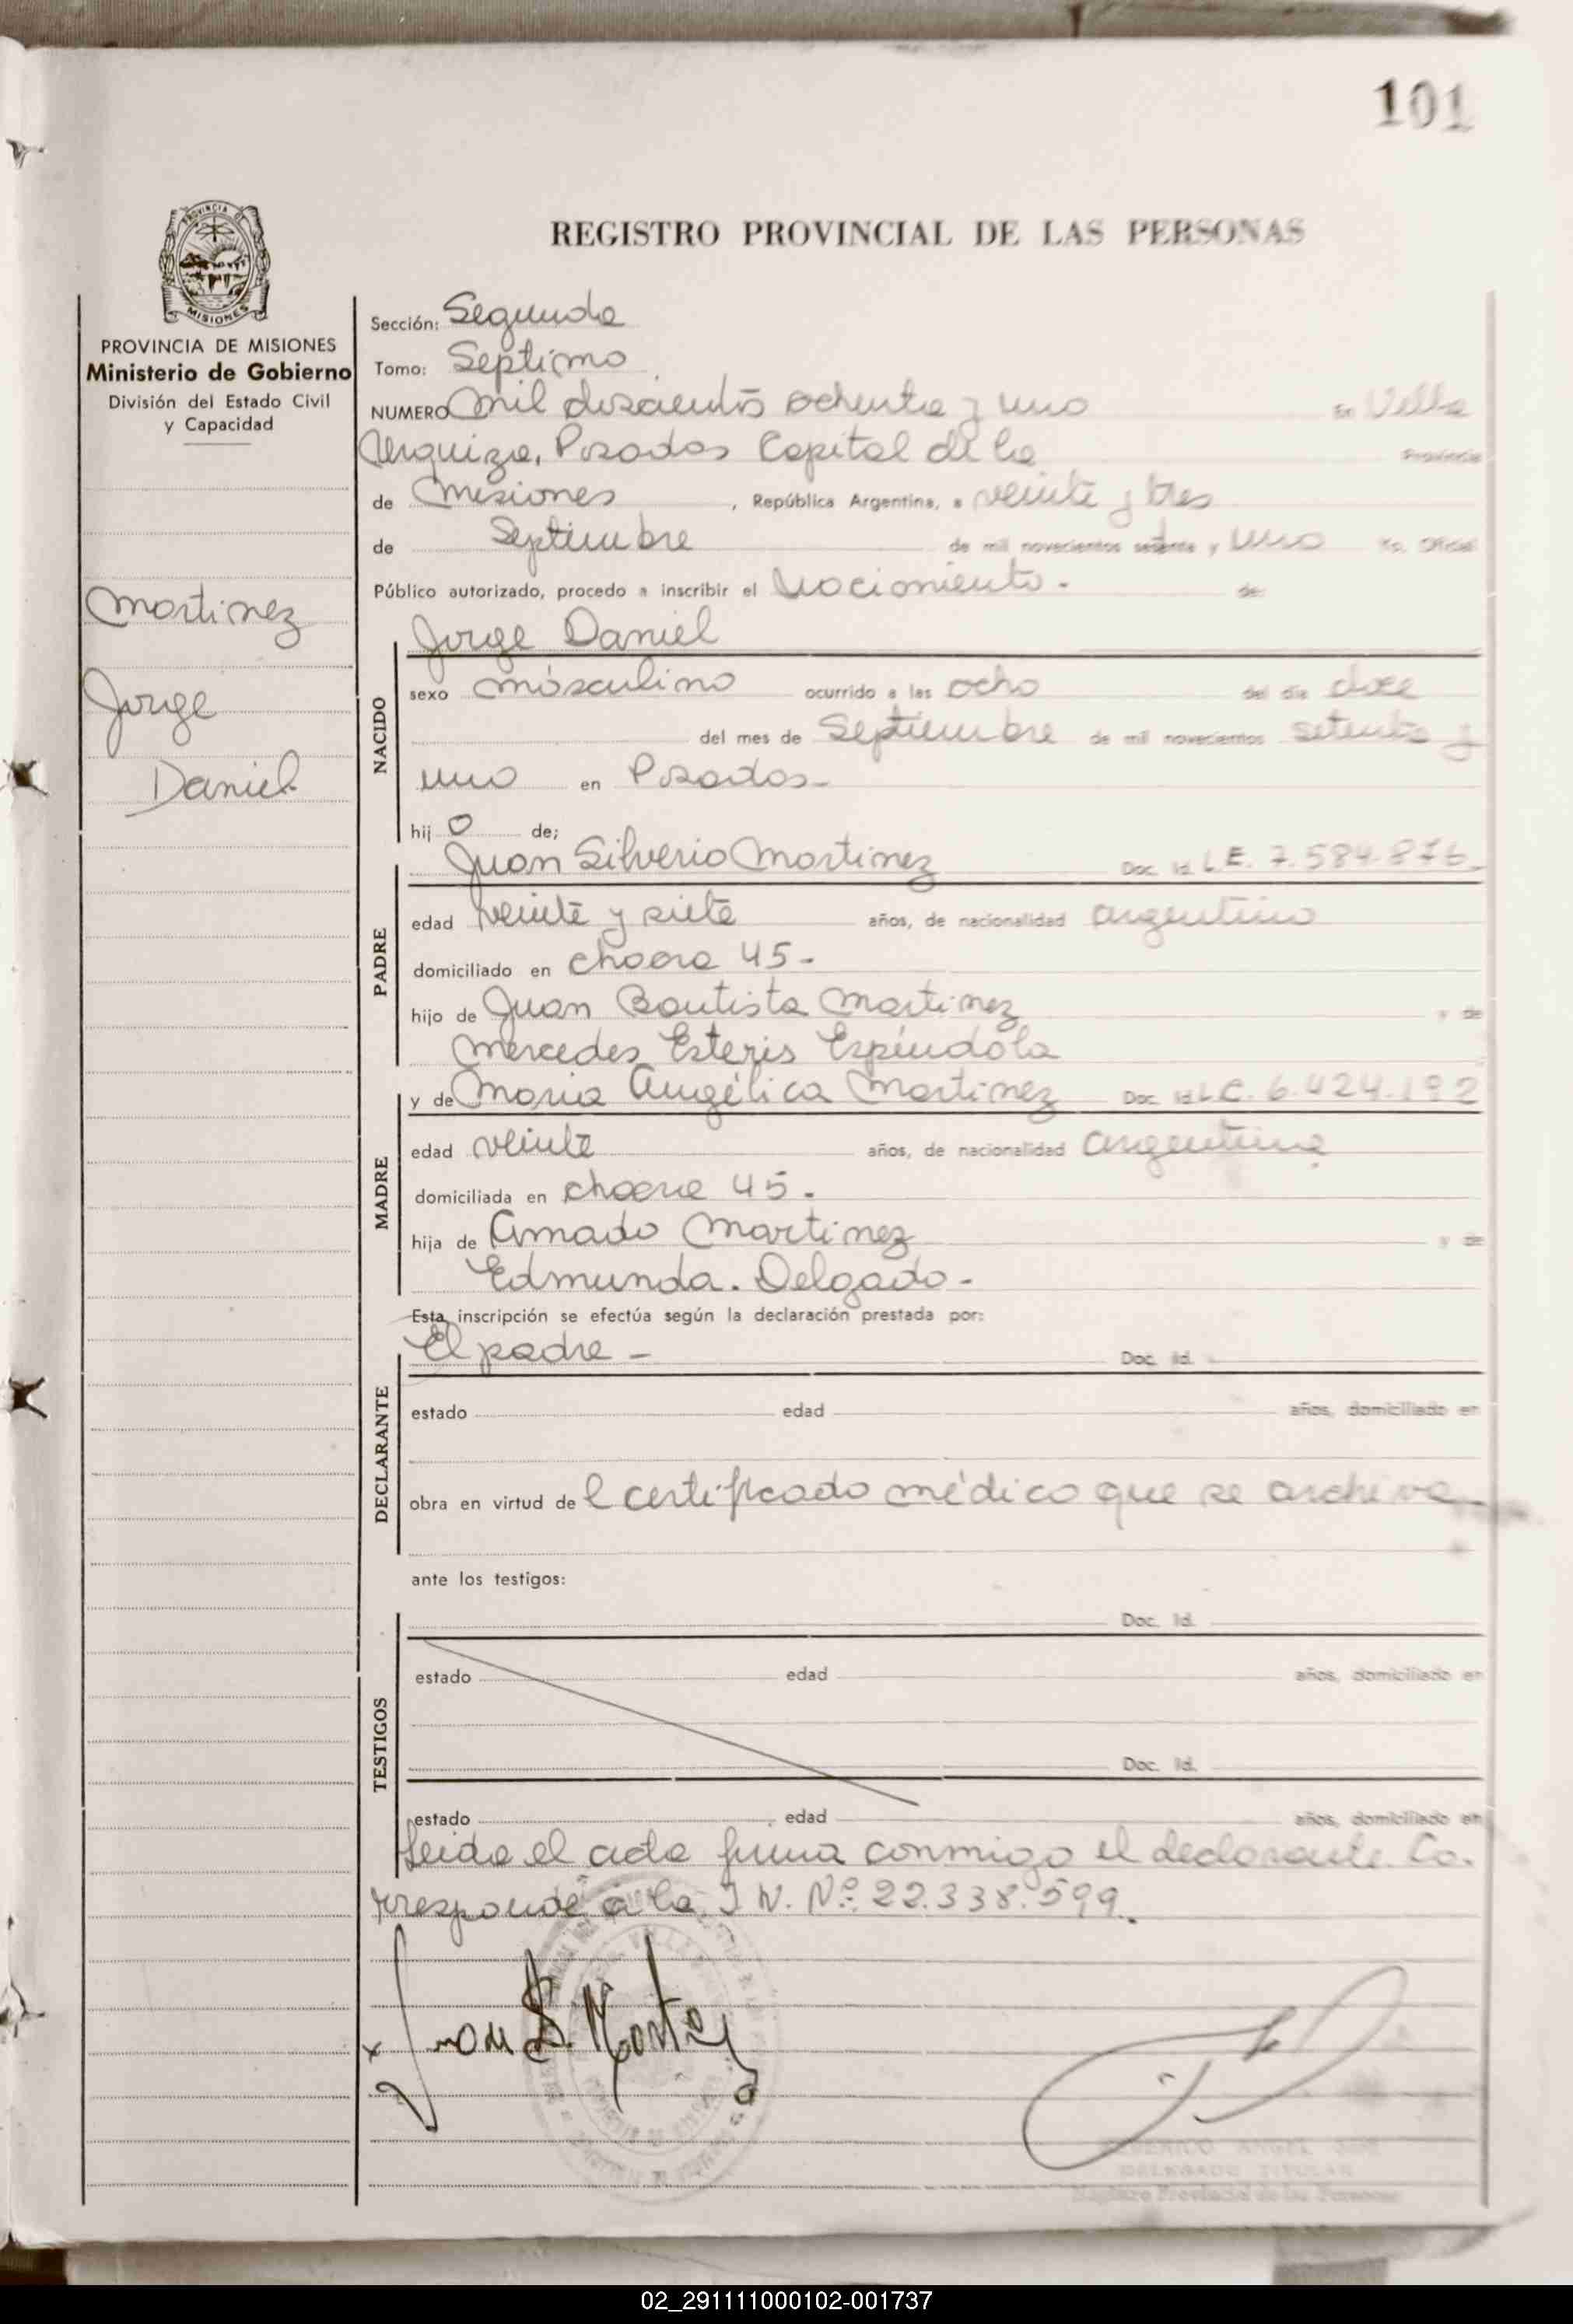 101
PROVINCIA DE
MISIONES
REGISTRO PROVINCIAL DE LAS PERSONAS
PROVINCIA DE MISIONES
Ministerio de Gobierno
División del Estado Civil
y Capacidad
Martinez
Jorge
Daniel
Sección: Segunda
Tomo: Septimo
NUMERO Mil doscientos ochenta y uno En Villa
Urquiza, Posadas Capital de la Provincia
de Misiones, República Argentina, a veinte y tres
de Septiembre de mil novecientos setenta y uno Yo, Oficial
Público autorizado, procedo a inscribir el Nacimiento - de:
NACIDO
Jorge Daniel
sexo Masculino ocurrido a las ocho del día doce
del mes de Septiembre de mil novecientos setenta y
uno en Posadas-
hij o de;
PADRE
Juan Silverio Martinez Doc. Id. L.E. 7.584.876-
edad veinte y siete años, de nacionalidad argentino
domiciliado en chacra 45-
hijo de Juan Bautista Martinez y de
Mercedes Esteris Espíndola
MADRE
y de Maria Angélica Martinez Doc. Id. L.C. 6.424.192
edad veinte años, de nacionalidad argentina
domiciliada en chacra 45.
hija de Amado Martinez y de
Edmunda. Delgado-
Esta inscripción se efectúa según la declaración prestada por:
DECLARANTE
El padre - Doc. Id.
estado edad años, domiciliado en
obra en virtud de l certificado médico que se archiva
ante los testigos:
TESTIGOS
Doc. Id.
estado edad años, domiciliado en
Doc. Id.
estado edad años, domiciliado en
Leida el acta firma conmigo el declarante. Co-
rresponde a la I.N. Nº: 22.338.599.
x Juan S. Martinez
DELEGADO TITULAR
Registro Provincial de las Personas
02_291111000102-001737